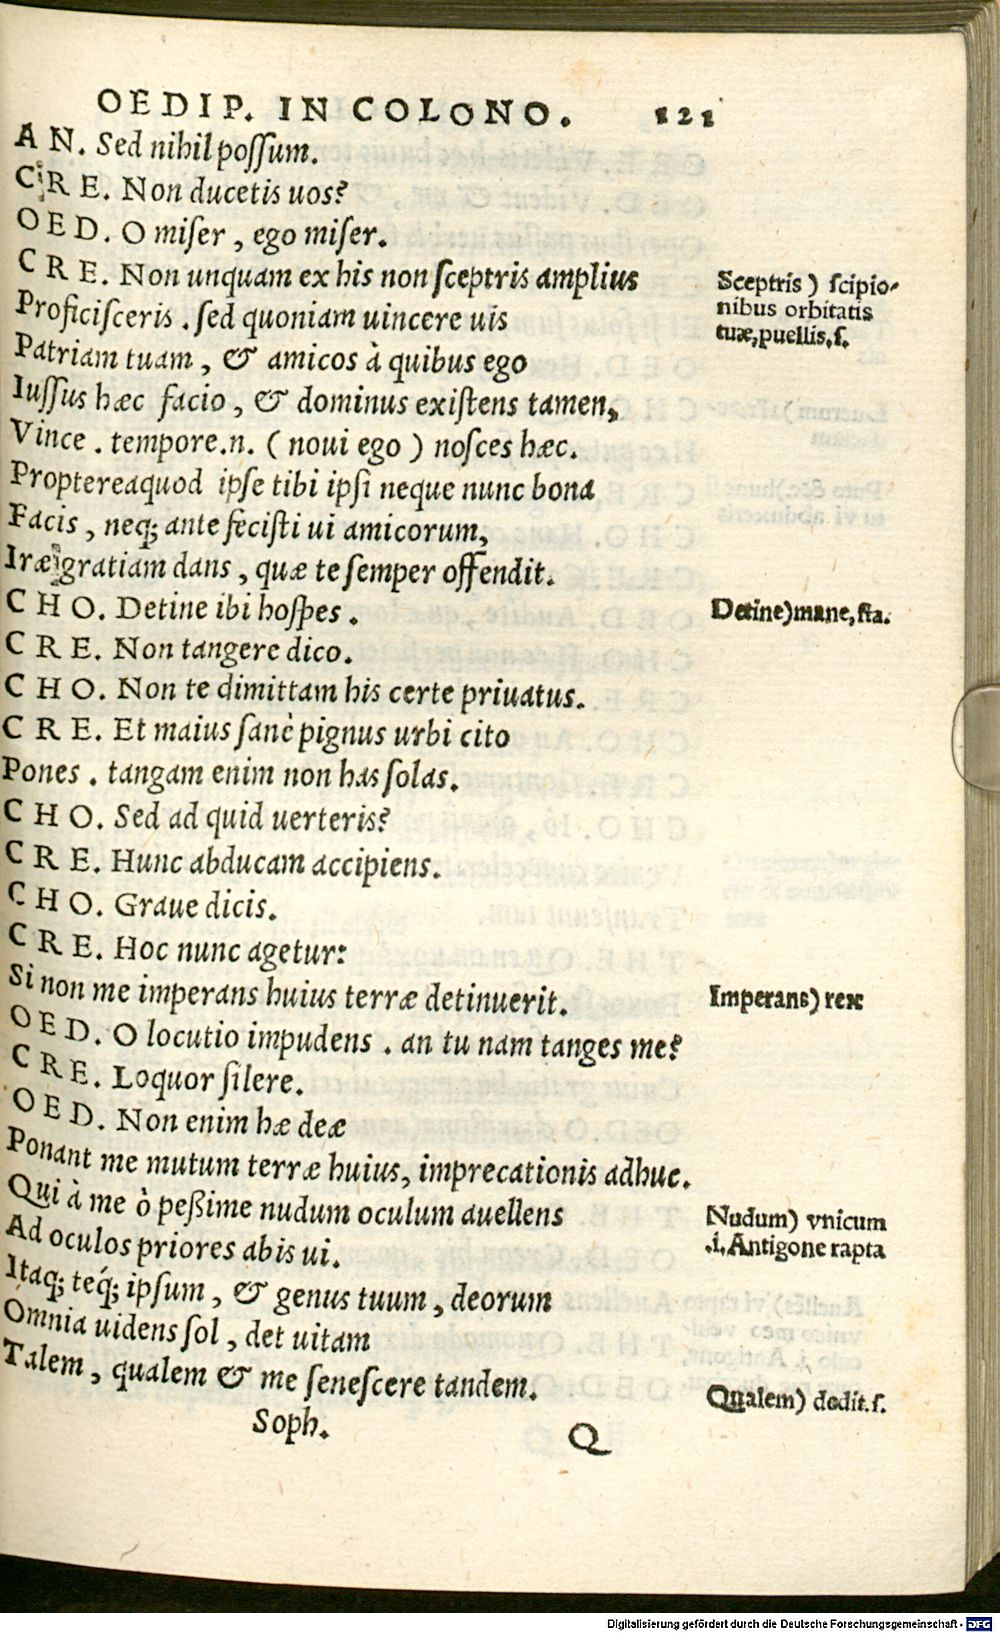 OEDIP. IN COLONO. 121
AN. Sed nihil poſſum.
CRE. Non ducetis uos?
OED. O miſer, ego miſer.
CRE. Non unquam ex his non ſceptris amplius
Proficiſceris. ſed quoniam uincere uis
Patriam tuam, & amicos à quibus ego
Iuſſus hæc facio, & dominus exiſtens tamen,
Vince. tempore.n. (noui ego) noſces hæc.
Proptereaquod ipſe tibi ipſi neque nunc bona
Facis, neq; ante feciſti ui amicorum,
Iræ gratiam dans, quæ te ſemper offendit.
CHO. Detine ibi hoſpes.
CRE. Non tangere dico.
CHO. Non te dimittam his certe priuatus.
CRE. Et maius ſanè pignus urbi cito
Pones. tangam enim non has ſolas.
CHO. Sed ad quid uerteris?
CRE. Hunc abducam accipiens.
CHO. Graue dicis.
CRE. Hoc nunc agetur:
Si non me imperans huius terræ detinuerit.
OED. O locutio impudens. an tu nam tanges me?
CRE. Loquor ſilere.
OED. Non enim hæ deæ
Ponant me mutum terræ huius, imprecationis adhuc.
Qui à me ò peßime nudum oculum auellens
Ad oculos priores abis ui.
Itaq; teq́; ipſum, & genus tuum, deorum
Omnia uidens ſol, det uitam
Talem, qualem & me ſeneſcere tandem.
Soph. Q
Sceptris) ſcipio-
nibus orbitatis
tuæ, puellis, ſ.
Detine) mane, ſta.
Imperans) rex
Nudum) vnicum
.i. Antigone rapta
Qualem) dedit. ſ.
Digitalisierung gefördert durch die Deutsche Forschungsgemeinschaft - DFG